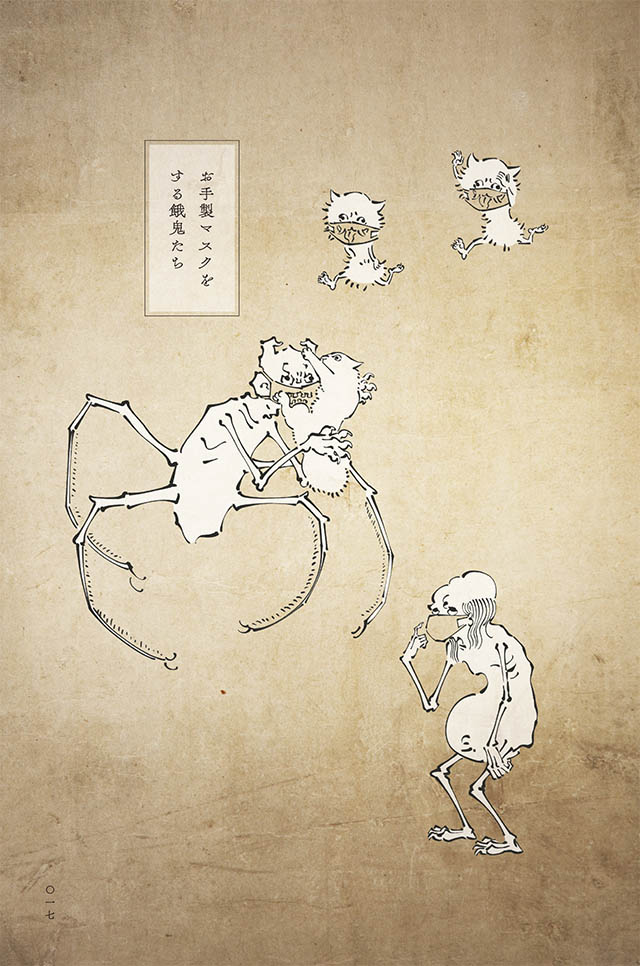 お手製マスクを
する餓鬼たち
〇一七